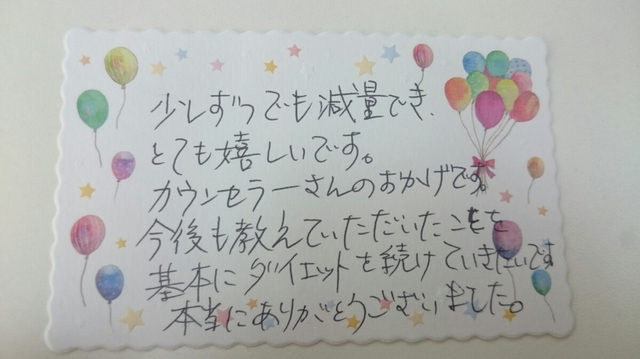 少しずつでも減量でき、
とても嬉しいです。
カウンセラーさんのおかげです。
今後も教えていただいたことを
基本にダイエットを続けていきたいです
本当にありがとうございました。